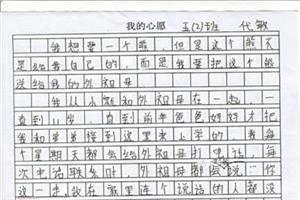 我的心愿 五(2)班 代敏
我想要一个熊，但是这个熊不
是给我自己的，而是我要把这个熊
送给我的外祖母。
我从小就和外祖母在一起，一
直到11岁，直到前年爸爸妈妈才把
我和弟弟接到这里来上学的，我每
个星期天都会给外祖母打电话，每
次电话联系时，外祖母都会说:“你
这一走，我在家里连个说话的人都没